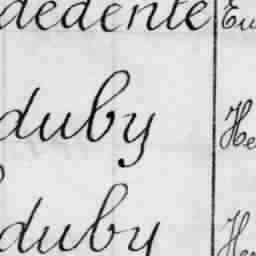 dédente
duby He
duby He